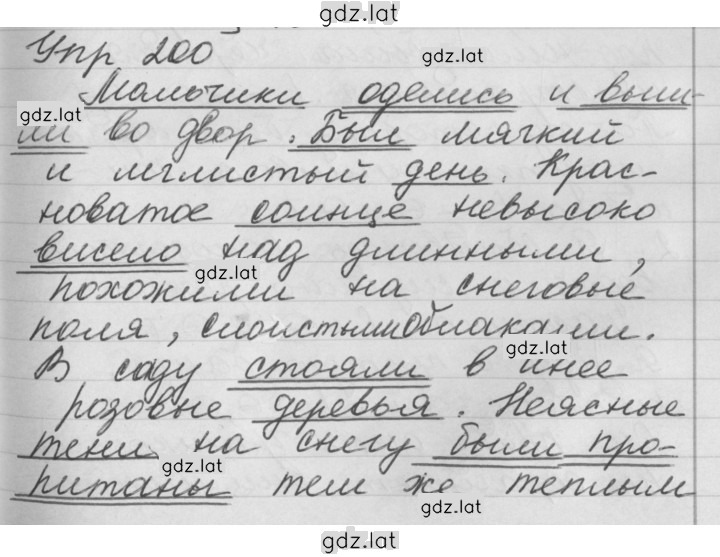 gdz.lat
Упр 200
gdz.lat
Мальчики оделись и выш-
gdz.lat
ли во двор. Был мягкий
и мглистый день. Крас-
новатое солнце невысоко
висело над длинными,
gdz.lat
похожими на снеговые
поля, слоистыми облаками.
gdz.lat
В саду стояли в инее
розовые деревья. Неясные
тени на снегу были про-
gdz.lat
питаны тем же теплым
gdz.lat
gdz.lat